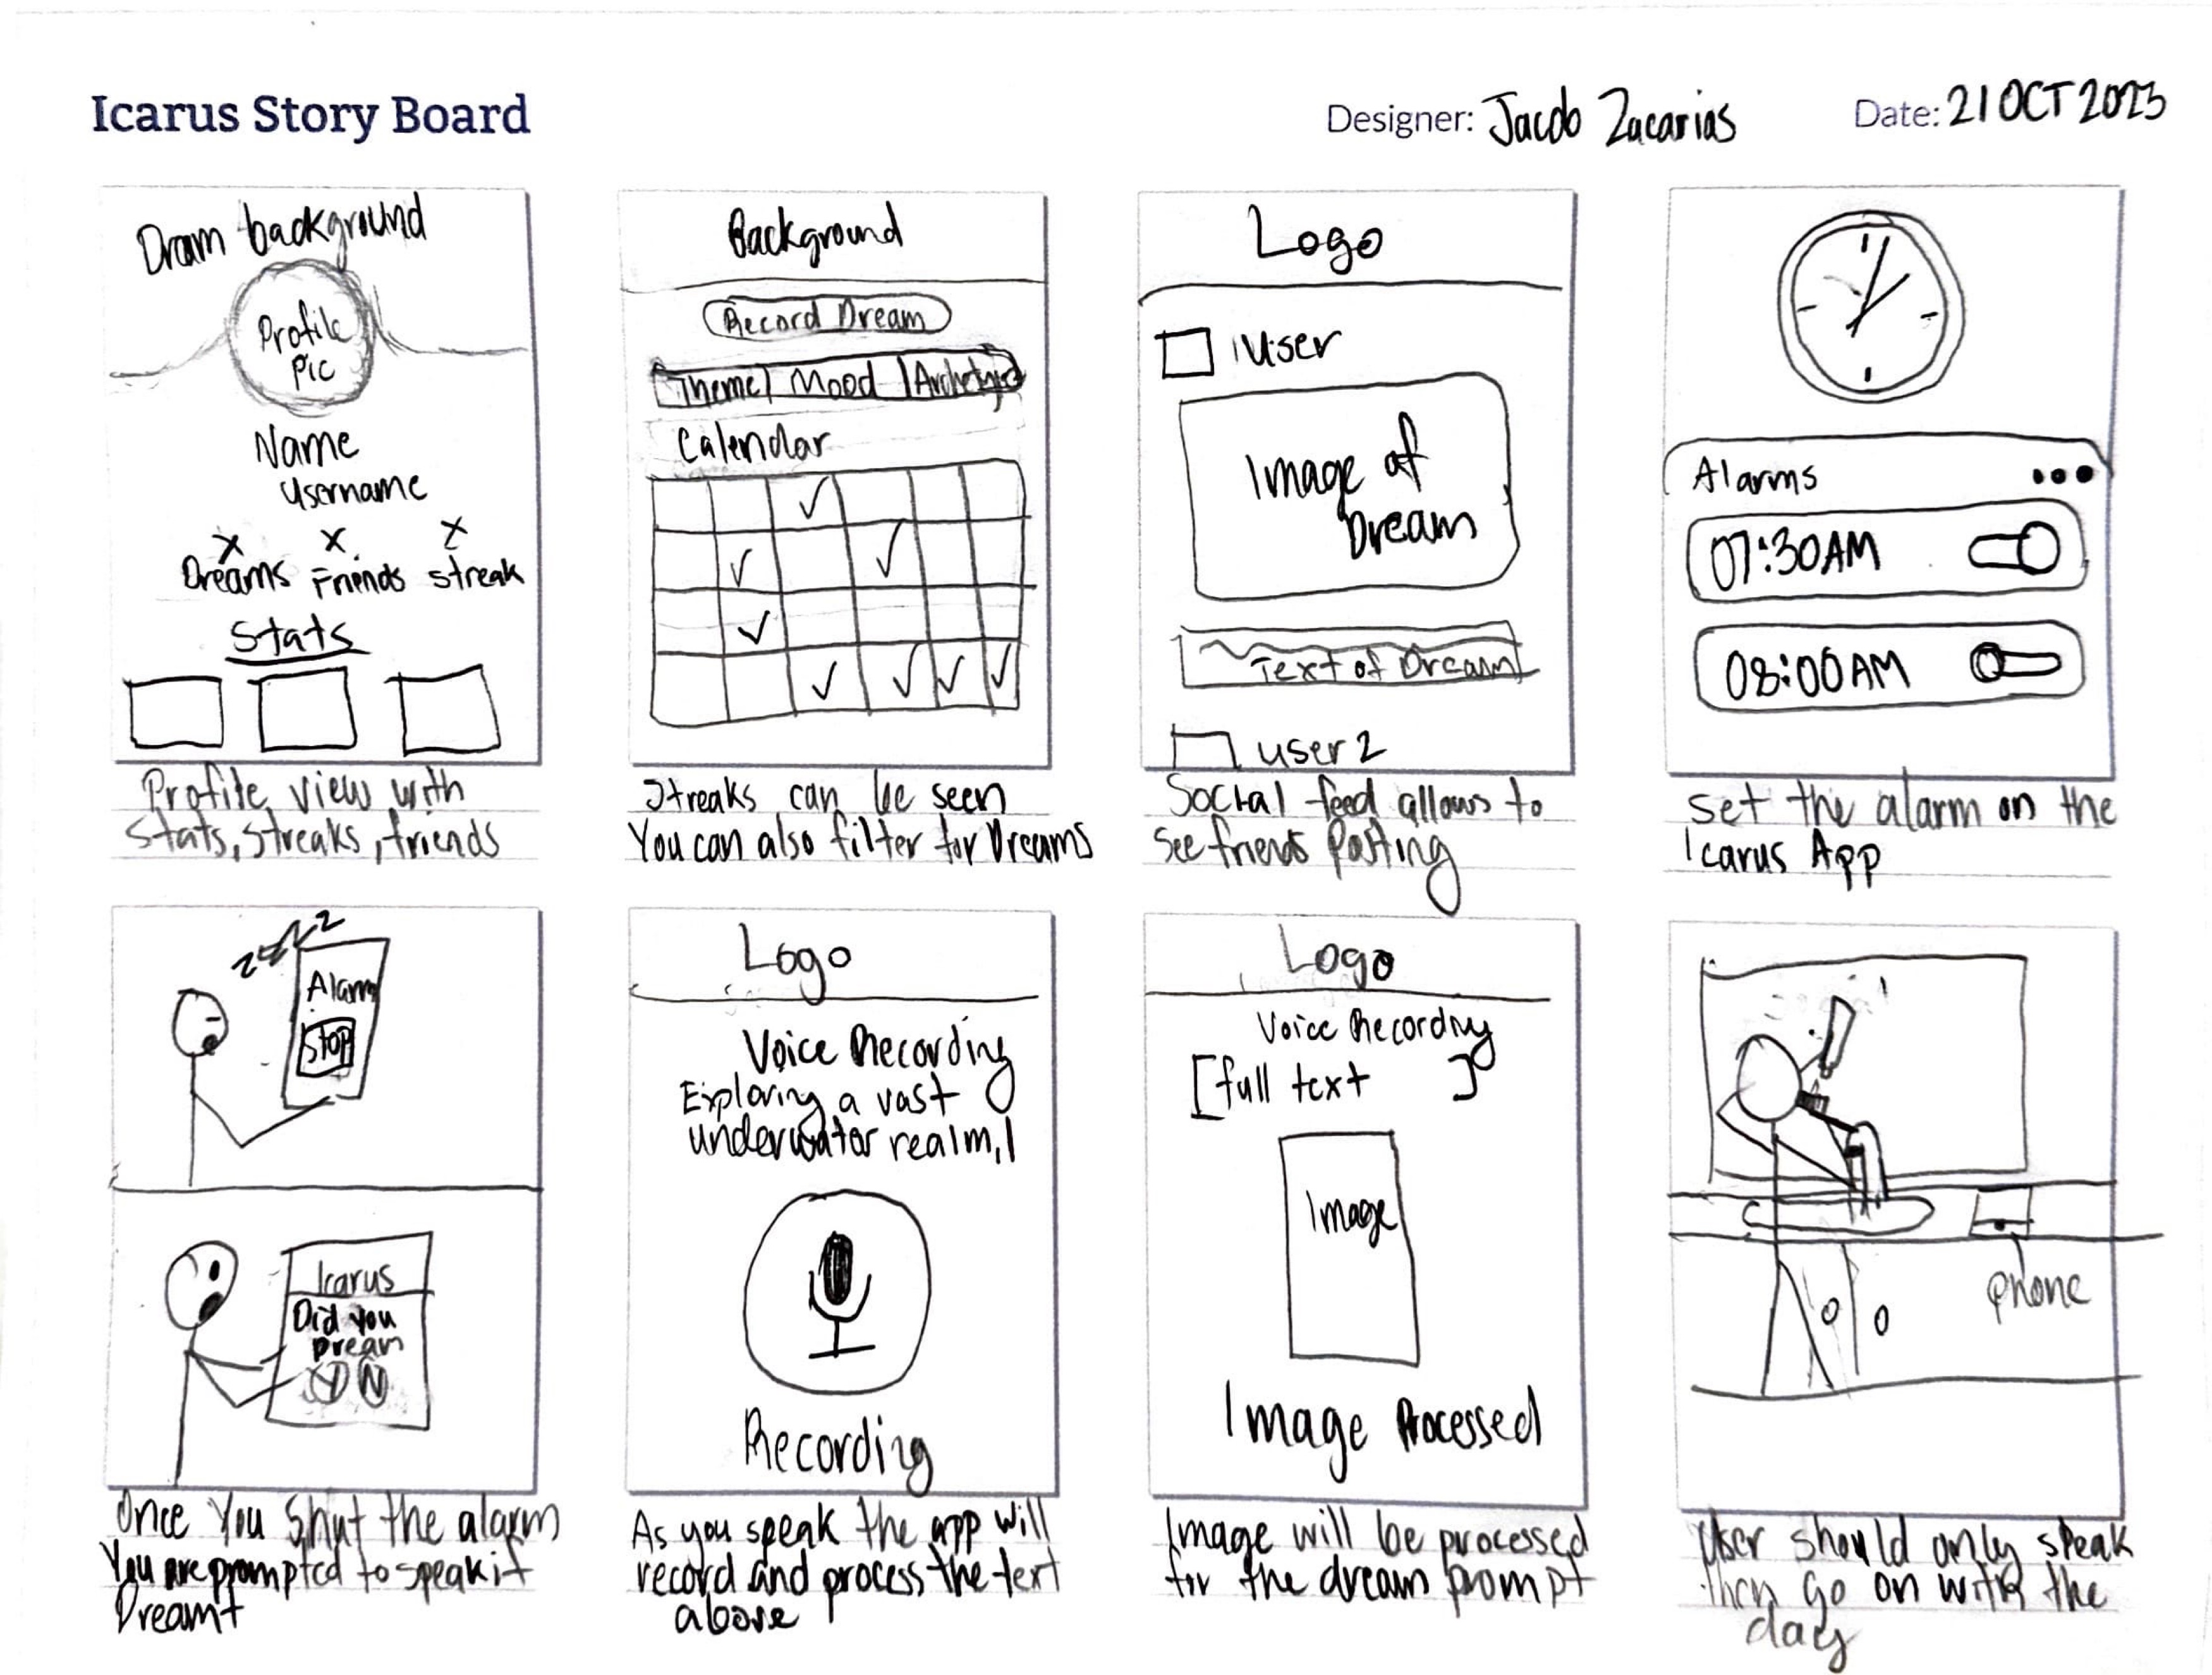 Icarus Story Board
Designer: Jacob Zacarias
Date: 21 OCT 2023
Dram background
Profile
Pic
Name
Username
X X X
Dreams Friends streak
Stats
Profile view with
Stats, streaks, friends
Background
Record Dream
Theme | Mood | Archetype
Calendar
Streaks can be seen
You can also filter for Dreams
Logo
User
Image of
Dream
Text of Dream
user 2
Social feed allows to
see friends Posting
Alarms
07:30AM
08:00AM
set the alarm on the
Icarus App
zzzzz
Alarm
Stop
Icarus
Did you
Dream
Y N
Once you shut the alarm
You are prompted to speak if
Dreamt
Logo
Voice Recording
Exploring a vast
underwater realm, I
Recording
As you speak the app will
record and process the text
above
Logo
Voice Recording
[full text ]
Image
Image Processed
Image will be processed
for the dream prompt
phone
User should only speak
then go on with the
day